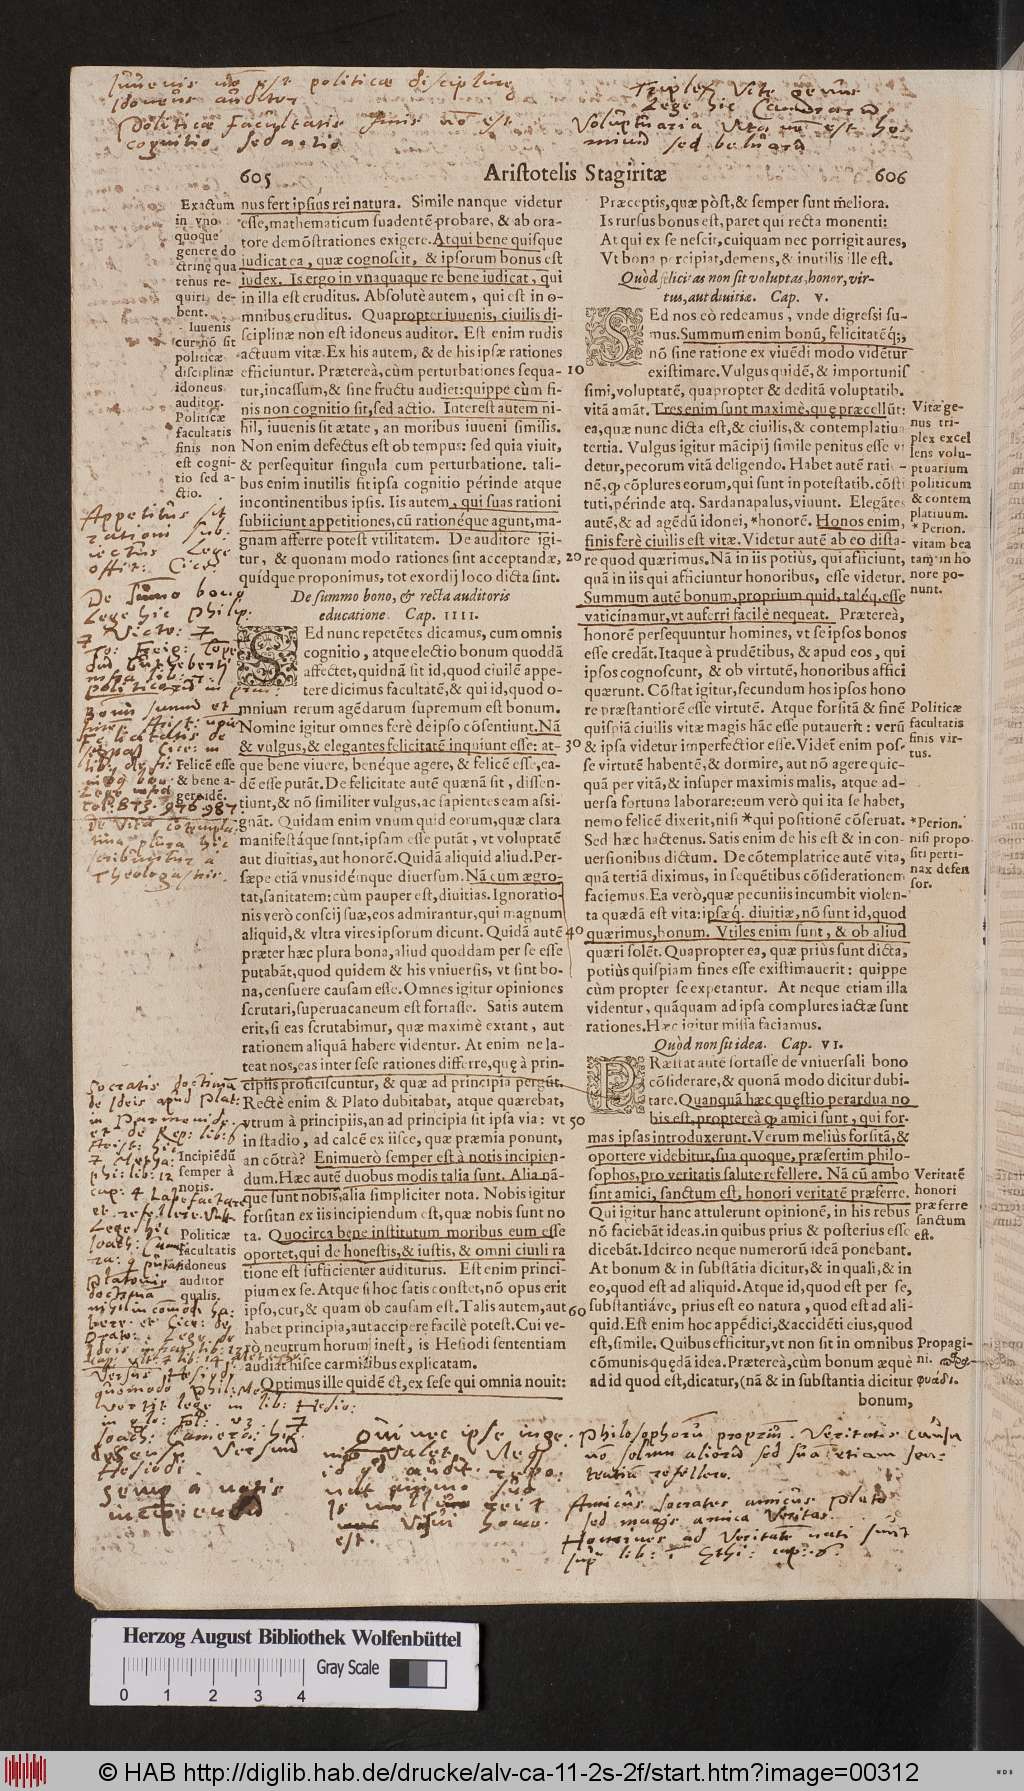 Juuenis nō est politicæ disciplinę
idoneus auditor
Politicæ facultatis finis nō est
cognitio sed actio
Triplex vitę genus
Lege hic Camerariū
Voluptuaria vita nō est ho-
minū sed beluarū
605
Aristotelis Stagiritæ
606
Exactum
in vno
quoque
genere do
ctrinę qua
tenus re-
quiri de-
bent.
Iuuenis
cur nō sit
politicæ
disciplinæ
idoneus
auditor.
Politicæ
facultatis
finis non
est cogni-
tio sed a-
ctio.
Appetitus sit
rationi sub-
iectus Lege
offic: Cice:
De summo bono
Lege hic Philip.
Felicē esse
& bene a-
gere idē.
Theologastris.
Socratis doctrinā
de Ideis apud Plat:
Incipiēdū
semper à
notis.
Politicæ
facultatis
idoneus
auditor
qualis.
nus fert ipsius rei natura. Simile nanque videtur
esse, mathematicum suadentē probare, & ab ora-
tore demōstrationes exigere. Atqui bene quisque
iudicat ea, quæ cognoscit, & ipsorum bonus est
iudex. Is ergo in vnaquaque re bene iudicat, qui
in illa est eruditus. Absolutè autem, qui est in o-
mnibus eruditus. Quapropter iuuenis, ciuilis di-
sciplinæ non est idoneus auditor. Est enim rudis
actuum vitæ. Ex his autem, & de his ipsæ rationes
efficiuntur. Prætereà, cùm perturbationes sequa-
tur, incassum, & sine fructu audiet: quippe cùm fi-
nis non cognitio sit, sed actio. Interest autem ni-
hil, iuuenis sit ætate, an moribus iuueni similis.
Non enim defectus est ob tempus: sed quia viuit,
& persequitur singula cum perturbatione. tali-
bus enim inutilis fit ipsa cognitio périnde atque
incontinentibus ipsis. Iis autem, qui suas rationi
subiiciunt appetitiones, cū rationéque agunt, ma-
gnam afferre potest vtilitatem. De auditore igi-
tur, & quonam modo rationes sint acceptandæ,
quídque proponimus, tot exordij loco dicta sint.
De summo bono, & recta auditoris
educatione. Cap. IIII.
SEd nunc repetētes dicamus, cum omnis
cognitio, atque electio bonum quoddā
affectet, quidnā sit id, quod ciuilē appe-
tere dicimus facultatē, & qui id, quod o-
mnium rerum agēdarum supremum est bonum.
Nomine igitur omnes ferè de ipso cōsentiunt. Nā
& vulgus, & elegantes felicitatē inquiunt esse: at-
que bene viuere, benéque agere, & felicē esse, ea-
dē esse putāt. De felicitate autē quænā sit, dissen-
tiunt, & nō similiter vulgus, ac sapientes eam assi-
gnāt. Quidam enim vnum quid eorum, quæ clara
manifestáque sunt, ipsam esse putāt, vt voluptatē
aut diuitias, aut honorē. Quidā aliquid aliud. Per-
sæpe etiā vnus idémque diuersum. Nā cum ægro-
tat, sanitatem: cùm pauper est, diuitias. Ignoratio-
nis verò conscij suæ, eos admirantur, qui magnum
aliquid, & vltra vires ipsorum dicunt. Quidā autē
præter hæc plura bona, aliud quoddam per se esse
putabāt, quod quidem & his vniuersis, vt sint bo-
na, censuere causam esse. Omnes igitur opiniones
scrutari, superuacaneum est fortasse. Satis autem
erit, si eas scrutabimur, quæ maximè extant, aut
rationem aliquā habere videntur. At enim ne la-
teat nos, eas inter sese rationes differre, quę à prin-
cipiis proficiscuntur, & quæ ad principia pergūt.
Rectè enim & Plato dubitabat, atque quærebat,
vtrum à principiis, an ad principia sit ipsa via: vt
in stadio, ad calcē ex iisce, quæ præmia ponunt,
an cōtrà? Enimuerò semper est à notis incipien-
dum. Hæc autē duobus modis talia sunt. Alia nā-
que sunt nobis, alia simpliciter nota. Nobis igitur
forsitan ex iis incipiendum est, quæ nobis sunt no
ta. Quocirca bene institutum moribus eum esse
oportet, qui de honestis, & iustis, & omni ciuili ra
tione est sufficienter auditurus. Est enim princi-
pium ex se. Atque si hoc satis constet, nō opus erit
ipso, cur, & quam ob causam est. Talis autem, aut
habet principia, aut accipere facilè potest. Cui ve-
rò neutrum horum inest, is Hesiodi sententiam
audiat hisce carminibus explicatam.
Optimus ille quidē est, ex sese qui omnia nouit:
10
20
30
40
50
60
Præceptis, quæ pòst, & semper sunt meliora.
Is rursus bonus est, paret qui recta monenti:
At qui ex se nescit, cuiquam nec porrigit aures,
Vt bona percipiat, demens, & inutilis ille est.
Quòd felicitas non sit voluptas, honor, vir-
tus, aut diuitiæ. Cap. V.
SEd nos eò redeamus, vnde digressi su-
mus. Summum enim bonū, felicitatēq́;,
nō sine ratione ex viuēdi modo videtur
existimare. Vulgus quidē, & importunis
simi, voluptatē, quapropter & deditā voluptatib.
vitā amāt. Tres enim sunt maximè, quę præcellūt:
ea, quæ nunc dicta est, & ciuilis, & contemplatiua
tertia. Vulgus igitur mācipij simile penitus esse vi
detur, pecorum vitā deligendo. Habet autē ratio-
nē, ꝙ cōplures eorum, qui sunt in potestatib. cōsti
tuti, périnde atq. Sardanapalus, viuunt. Elegātes
autē, & ad agēdū idonei, *honorē. Honos enim,
finis ferè ciuilis est vitæ. Videtur autē ab eo dista-
re quod quærimus. Nā in iis potiùs, qui afficiunt,
quā in iis qui afficiuntur honoribus, esse videtur.
Summum autē bonum, proprium quid, taléq. esse
vaticinamur, vt auferri facilè nequeat. Prætereà,
honorē persequuntur homines, vt se ipsos bonos
esse credāt. Itaque à prudētibus, & apud eos, qui
ipsos cognoscunt, & ob virtutē, honoribus affici
quærunt. Cōstat igitur, secundum hos ipsos hono
re præstantiorē esse virtutē. Atque forsitā & finē
quispiā ciuilis vitæ magis hāc esse putauerit: verū
& ipsa videtur imperfectior esse. Videt enim pos-
se virtutē habentē, & dormire, aut nō agere quic-
quā per vitā, & insuper maximis malis, atque ad-
uersa fortuna laborare: eum verò qui ita se habet,
nemo felicē dixerit, nisi *qui positionē cōseruat.
Sed hæc hactenus. Satis enim de his est & in con-
uersionibus dictum. De cōtemplatrice autē vita,
quā tertiā diximus, in sequētibus cōsiderationem
faciemus. Ea verò, quæ pecuniis incumbit violen-
ta quædā est vita: ipsæq́. diuitiæ, nō sunt id, quod
quærimus, bonum. Vtiles enim sunt, & ob aliud
quæri solēt. Quapropter ea, quæ priùs sunt dicta,
potiùs quispiam fines esse existimauerit: quippe
cùm propter se expetantur. At neque etiam illa
videntur, quāquam ad ipsa complures iactæ sunt
rationes. Hæc igitur missa faciamus.
Quòd non sit idea. Cap. VI.
PRæstat autē fortasse de vniuersali bono
cōsiderare, & quonā modo dicitur dubi-
tare. Quanquā hæc quęstio perardua no
bis est, proptereà ꝙ amici sunt, qui for-
mas ipsas introduxerunt. Verum meliùs forsitā, &
oportere videbitur, sua quoque, præsertim philo-
sophos, pro veritatis salute refellere. Nā cū ambo
sint amici, sanctum est, honori veritatē præferre.
Qui igitur hanc attulerunt opinionē, in his rebus
nō faciebāt ideas. in quibus prius & posterius esse
dicebāt. Idcirco neque numerorū ideā ponebant.
At bonum & in substātia dicitur, & in quali, & in
eo, quod est ad aliquid. Atque id, quod est per se,
substantiáve, prius est eo natura, quod est ad ali-
quid. Est enim hoc appēdici, & accidēti eius, quod
est, simile. Quibus efficitur, vt non sit in omnibus
cōmunis quędā idea. Prætereà, cùm bonum æquè
ad id quod est, dicatur, (nā & in substantia dicitur
bonum,
Vitæ ge-
nus tri-
plex excel
lens volu-
ptuarium
politicum
& contem
platiuum.
* Perion.
vitam bea
tam in ho
nore po-
nunt.
Politicæ
facultatis
finis vir-
tus.
*Perion.
nisi propo
siti perti-
nax defen
sor.
Veritatē
honori
præferre
sanctum
est.
Propagi-
ni.
Hesiodi
semp a notis
incipiendū
Qui nec ipse inge-
nio valet, neq
est.
Philosophorū propriū. Veritatis causa
nō solum aliorū sed suā etiam sen-
tentiā refellere.
Amicus Socrates amicus Plato
sed magis amica veritas.
Homines ad veritatē nati sunt
sup lib: 1 Ethi: cap: 6.
Herzog August Bibliothek Wolfenbüttel
Gray Scale
0 1 2 3 4
© HAB http://diglib.hab.de/drucke/alv-ca-11-2s-2f/start.htm?image=00312